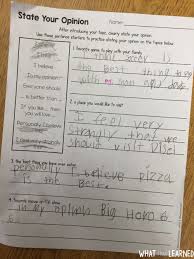 State Your Opinion Name
After introducing your topic, clearly state your opinion.
Use these sentence starters to practice stating your opinion on the topics below
I believe
In my opinion
Everyone should
is better than
If you like... then
you will love
Personally I believe
I feel strongly that
1. Favorite game to play with your family
the best thing to
with mom and
2. A place you would like to visit
I feel very
strongly that we
should visit
3. The best thing you have ever eaten
personally I believe pizza
is the best.
in my Big Hero 6
WHAT I HAVE LEARNED